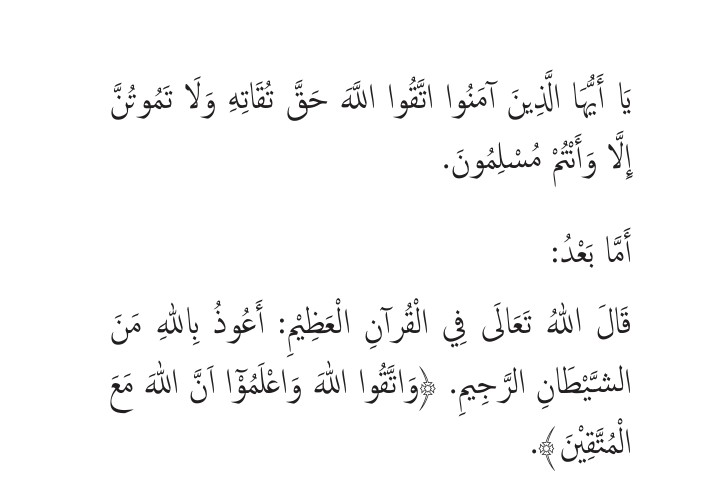 يَا أَيُّهَا الَّذِينَ آمَنُوا اتَّقُوا اللَّهَ حَقَّ تُقَاتِهِ وَلَا تَمُوتُنَّ
إِلَّا وَأَنْتُمْ مُسْلِمُونَ.
أَمَّا بَعْدُ:
قَالَ اللهُ تَعَالَى فِي الْقُرآنِ الْعَظِيْمِ: أَعُوذُ بِاللهِ مَنَ
الشَّيْطَانِ الرَّجِيمِ. ﴿وَاتَّقُوا اللهَ وَاعْلَمُوْٓا اَنَّ اللهَ مَعَ
الْمُتَّقِيْنَ﴾.